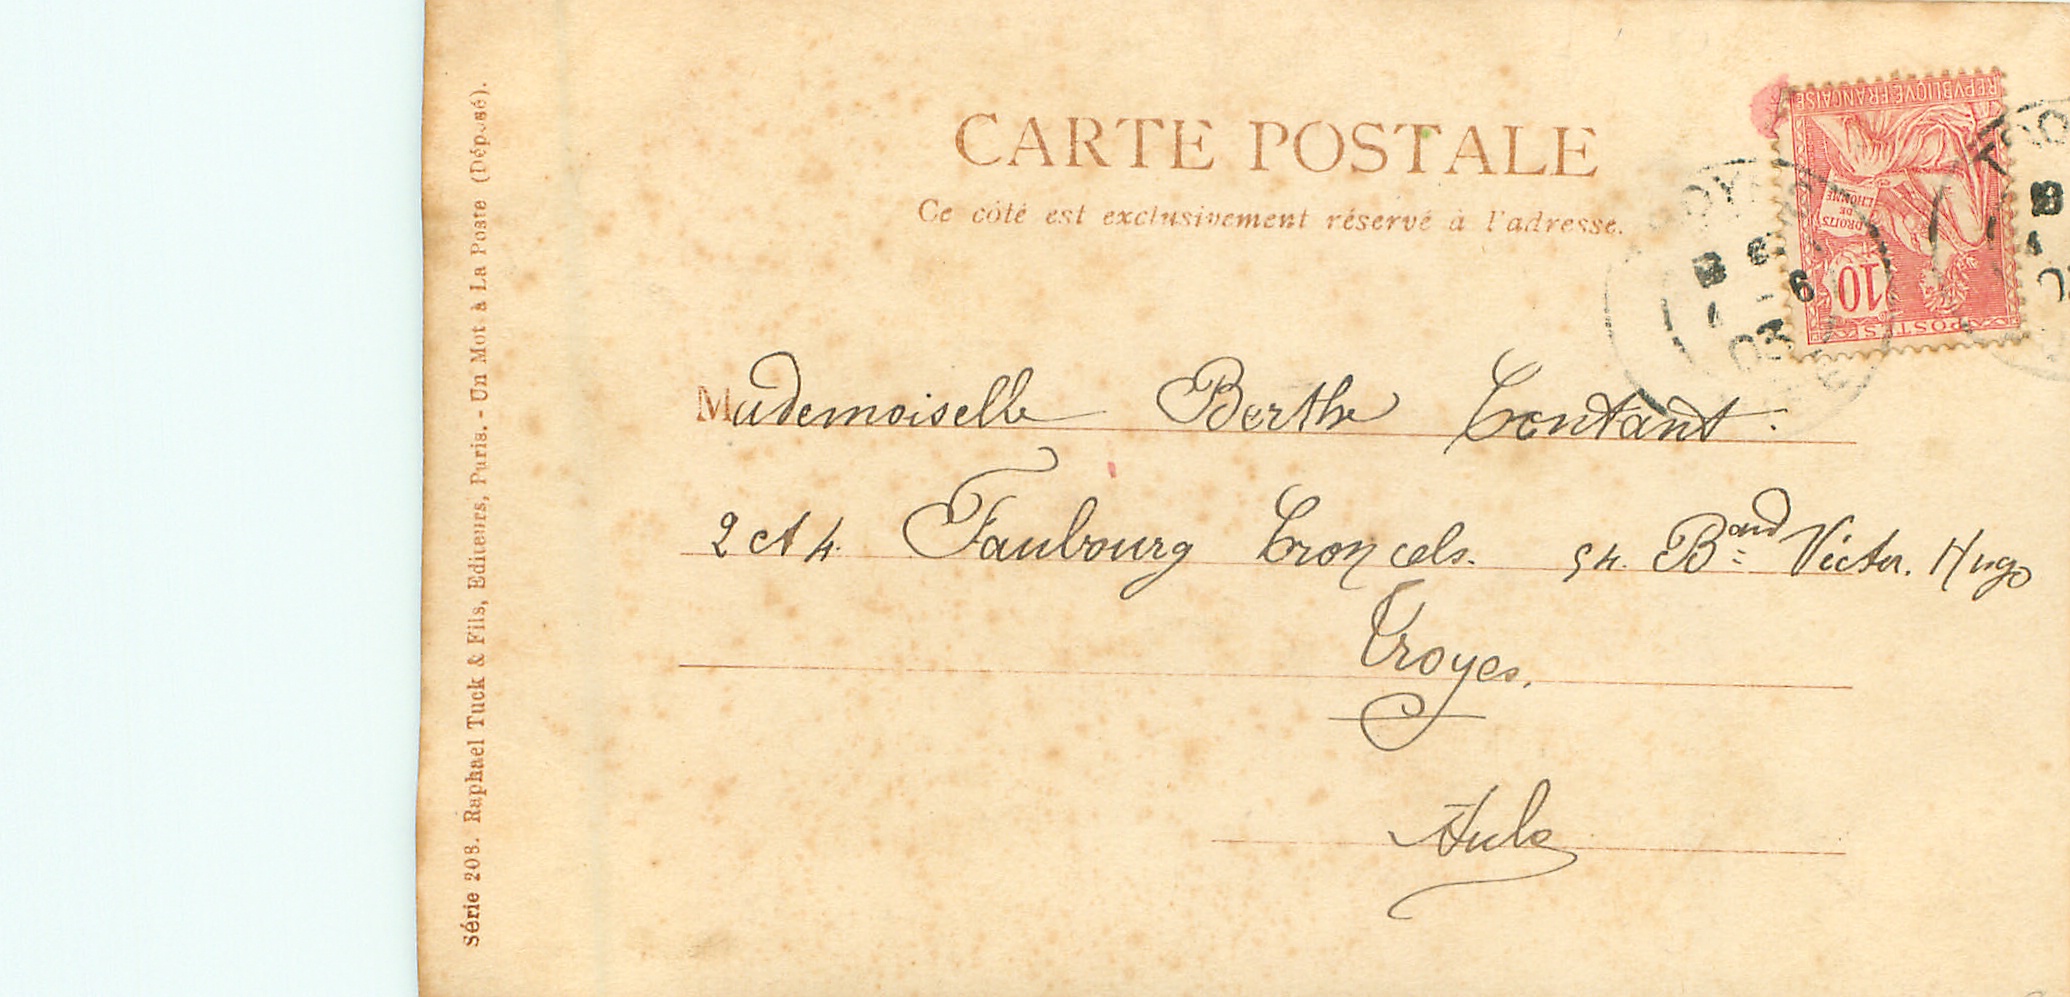 CARTE POSTALE
Ce côté est exclusivement réservé à l'adresse.
REPVBLIQVE FRANÇAISE
DROITS
DE
L'HOMME
10
POSTES
03
Mademoiselle Berthe Contant.
2 et 4 Faubourg Croncels. 54. Bard Victor. Hugo
Troyes.
Aube
Série 208. Raphael Tuck & Fils, Editeurs, Paris. - Un Mot à La Poste (Déposé).